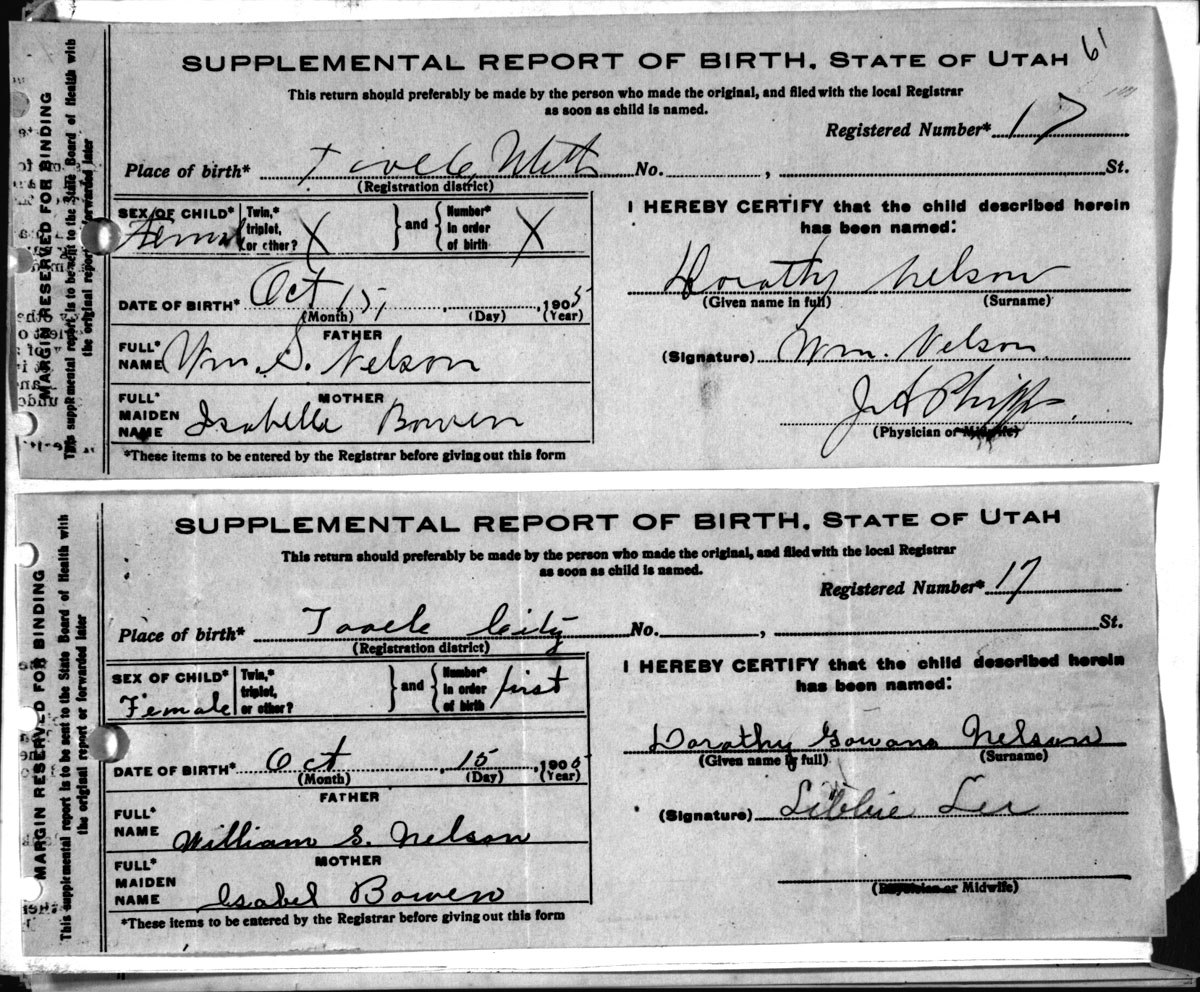 SUPPLEMENTAL REPORT OF BIRTH, STATE OF UTAH 61
This return should preferably be made by the person who made the original, and filed with the local Registrar
as soon as child is named.
Registered Number* 17
Place of birth* Tooele, Utah No. , St.
(Registration district)
SEX OF CHILD* Female
Twin,* triplet, or other? X } and { Number* in order of birth X
I HEREBY CERTIFY that the child described herein
has been named:
Dorathy Nelson
(Given name in full) (Surname)
DATE OF BIRTH* Oct 15, , 1905
(Month) (Day) (Year)
FATHER
FULL* NAME Wm. S. Nelson
(Signature) Wm. Nelson
MOTHER
FULL* MAIDEN NAME Isabelle Bowen
J A Phipps
(Physician or Midwife)
*These items to be entered by the Registrar before giving out this form
MARGIN RESERVED FOR BINDING
This supplemental report is to be sent to the State Board of Health with
the original report or forwarded later
SUPPLEMENTAL REPORT OF BIRTH, STATE OF UTAH
This return should preferably be made by the person who made the original, and filed with the local Registrar
as soon as child is named.
Registered Number* 17
Place of birth* Tooele City No. , St.
(Registration district)
SEX OF CHILD* Female
Twin,* triplet, or other? } and { Number* in order of birth first
I HEREBY CERTIFY that the child described herein
has been named:
Dorathy Gowans Nelson
(Given name in full) (Surname)
DATE OF BIRTH* Oct , 15 , 1905
(Month) (Day) (Year)
FATHER
FULL* NAME William S. Nelson
(Signature) Libbie Lee
MOTHER
FULL* MAIDEN NAME Isabel Bowen
(Physician or Midwife)
*These items to be entered by the Registrar before giving out this form
MARGIN RESERVED FOR BINDING
This supplemental report is to be sent to the State Board of Health with
the original report or forwarded later